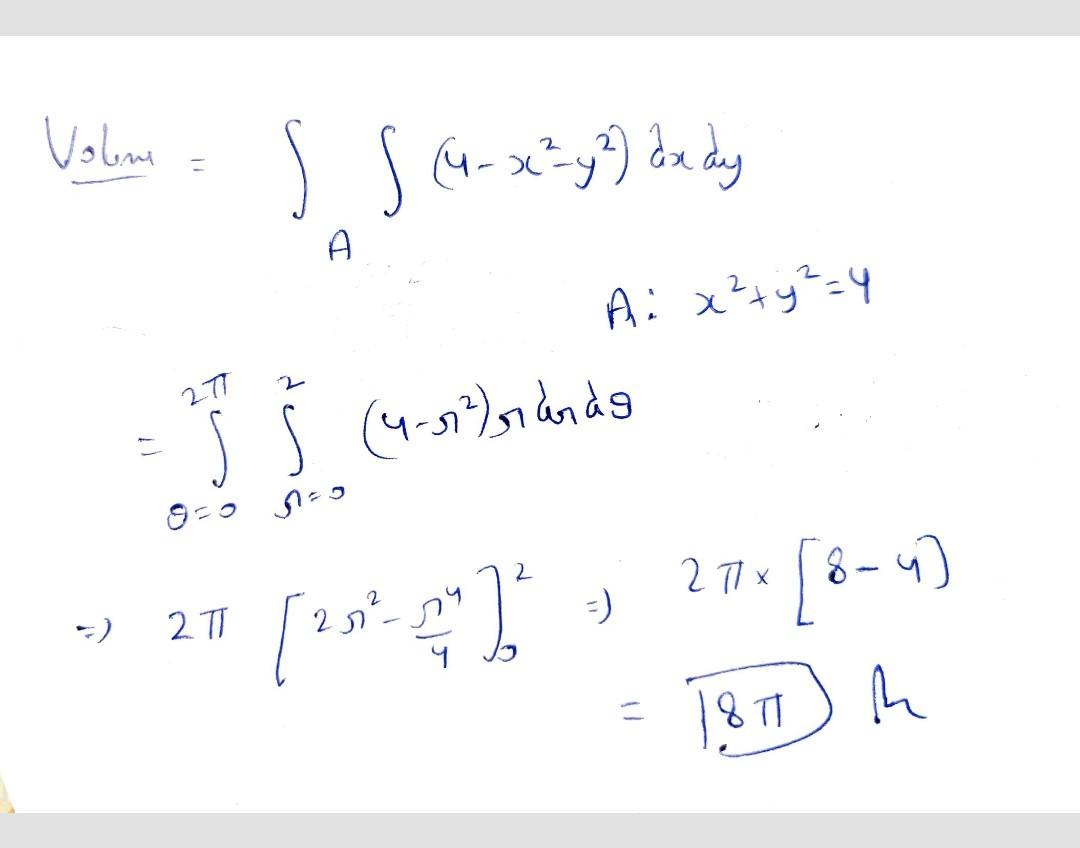 Volume = ∫ ∫ (4-x²-y²) dx dy
A
A: x²+y²=4
= ∫_{θ=0}^{2π} ∫_{r=0}^{2} (4-r²) r dr dθ
=> 2π [2r² - r⁴/4]₀² => 2π × [8-4]
= 8π